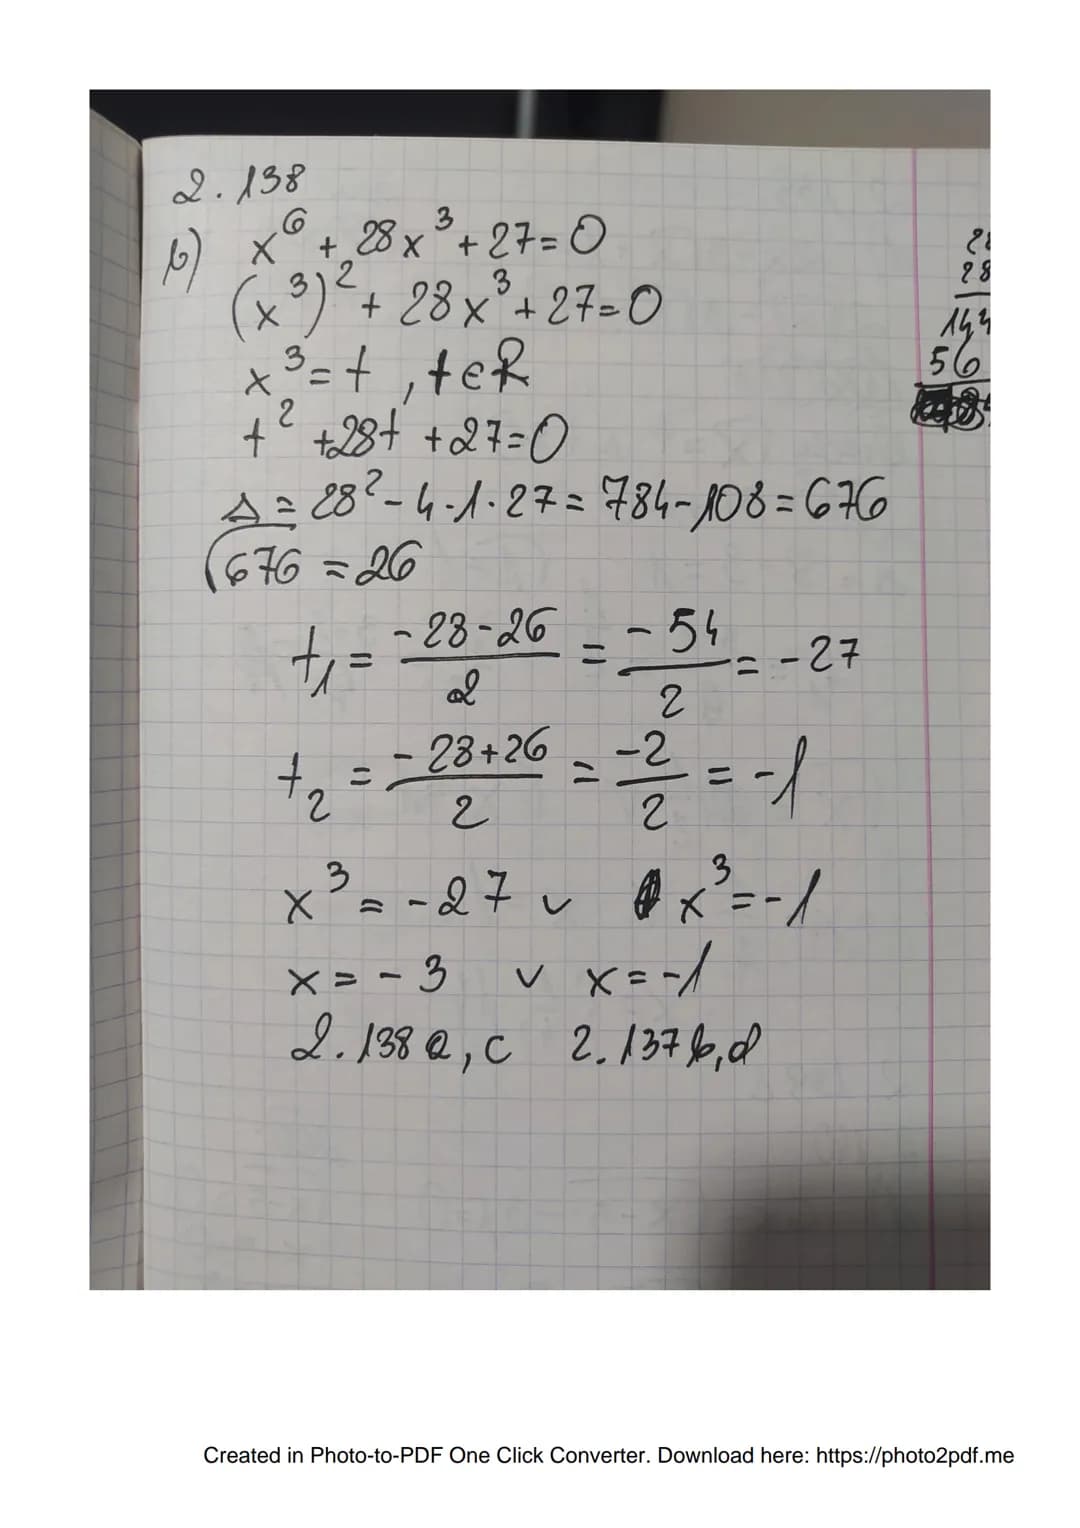 2.138
b) x⁶ + 28x³ + 27 = 0
(x³)² + 28x³ + 27 = 0
x³ = t , t ∈ R
t² + 28t + 27 = 0
Δ = 28² - 4·1·27 = 784 - 108 = 676
√676 = 26
t₁ = (-28-26)/2 = -54/2 = -27
t₂ = (-28+26)/2 = -2/2 = -1
x³ = -27 ∨ x³ = -1
x = -3 ∨ x = -1
2.138 a, c 2.137 b, d
28
56
Created in Photo-to-PDF One Click Converter. Download here: https://photo2pdf.me